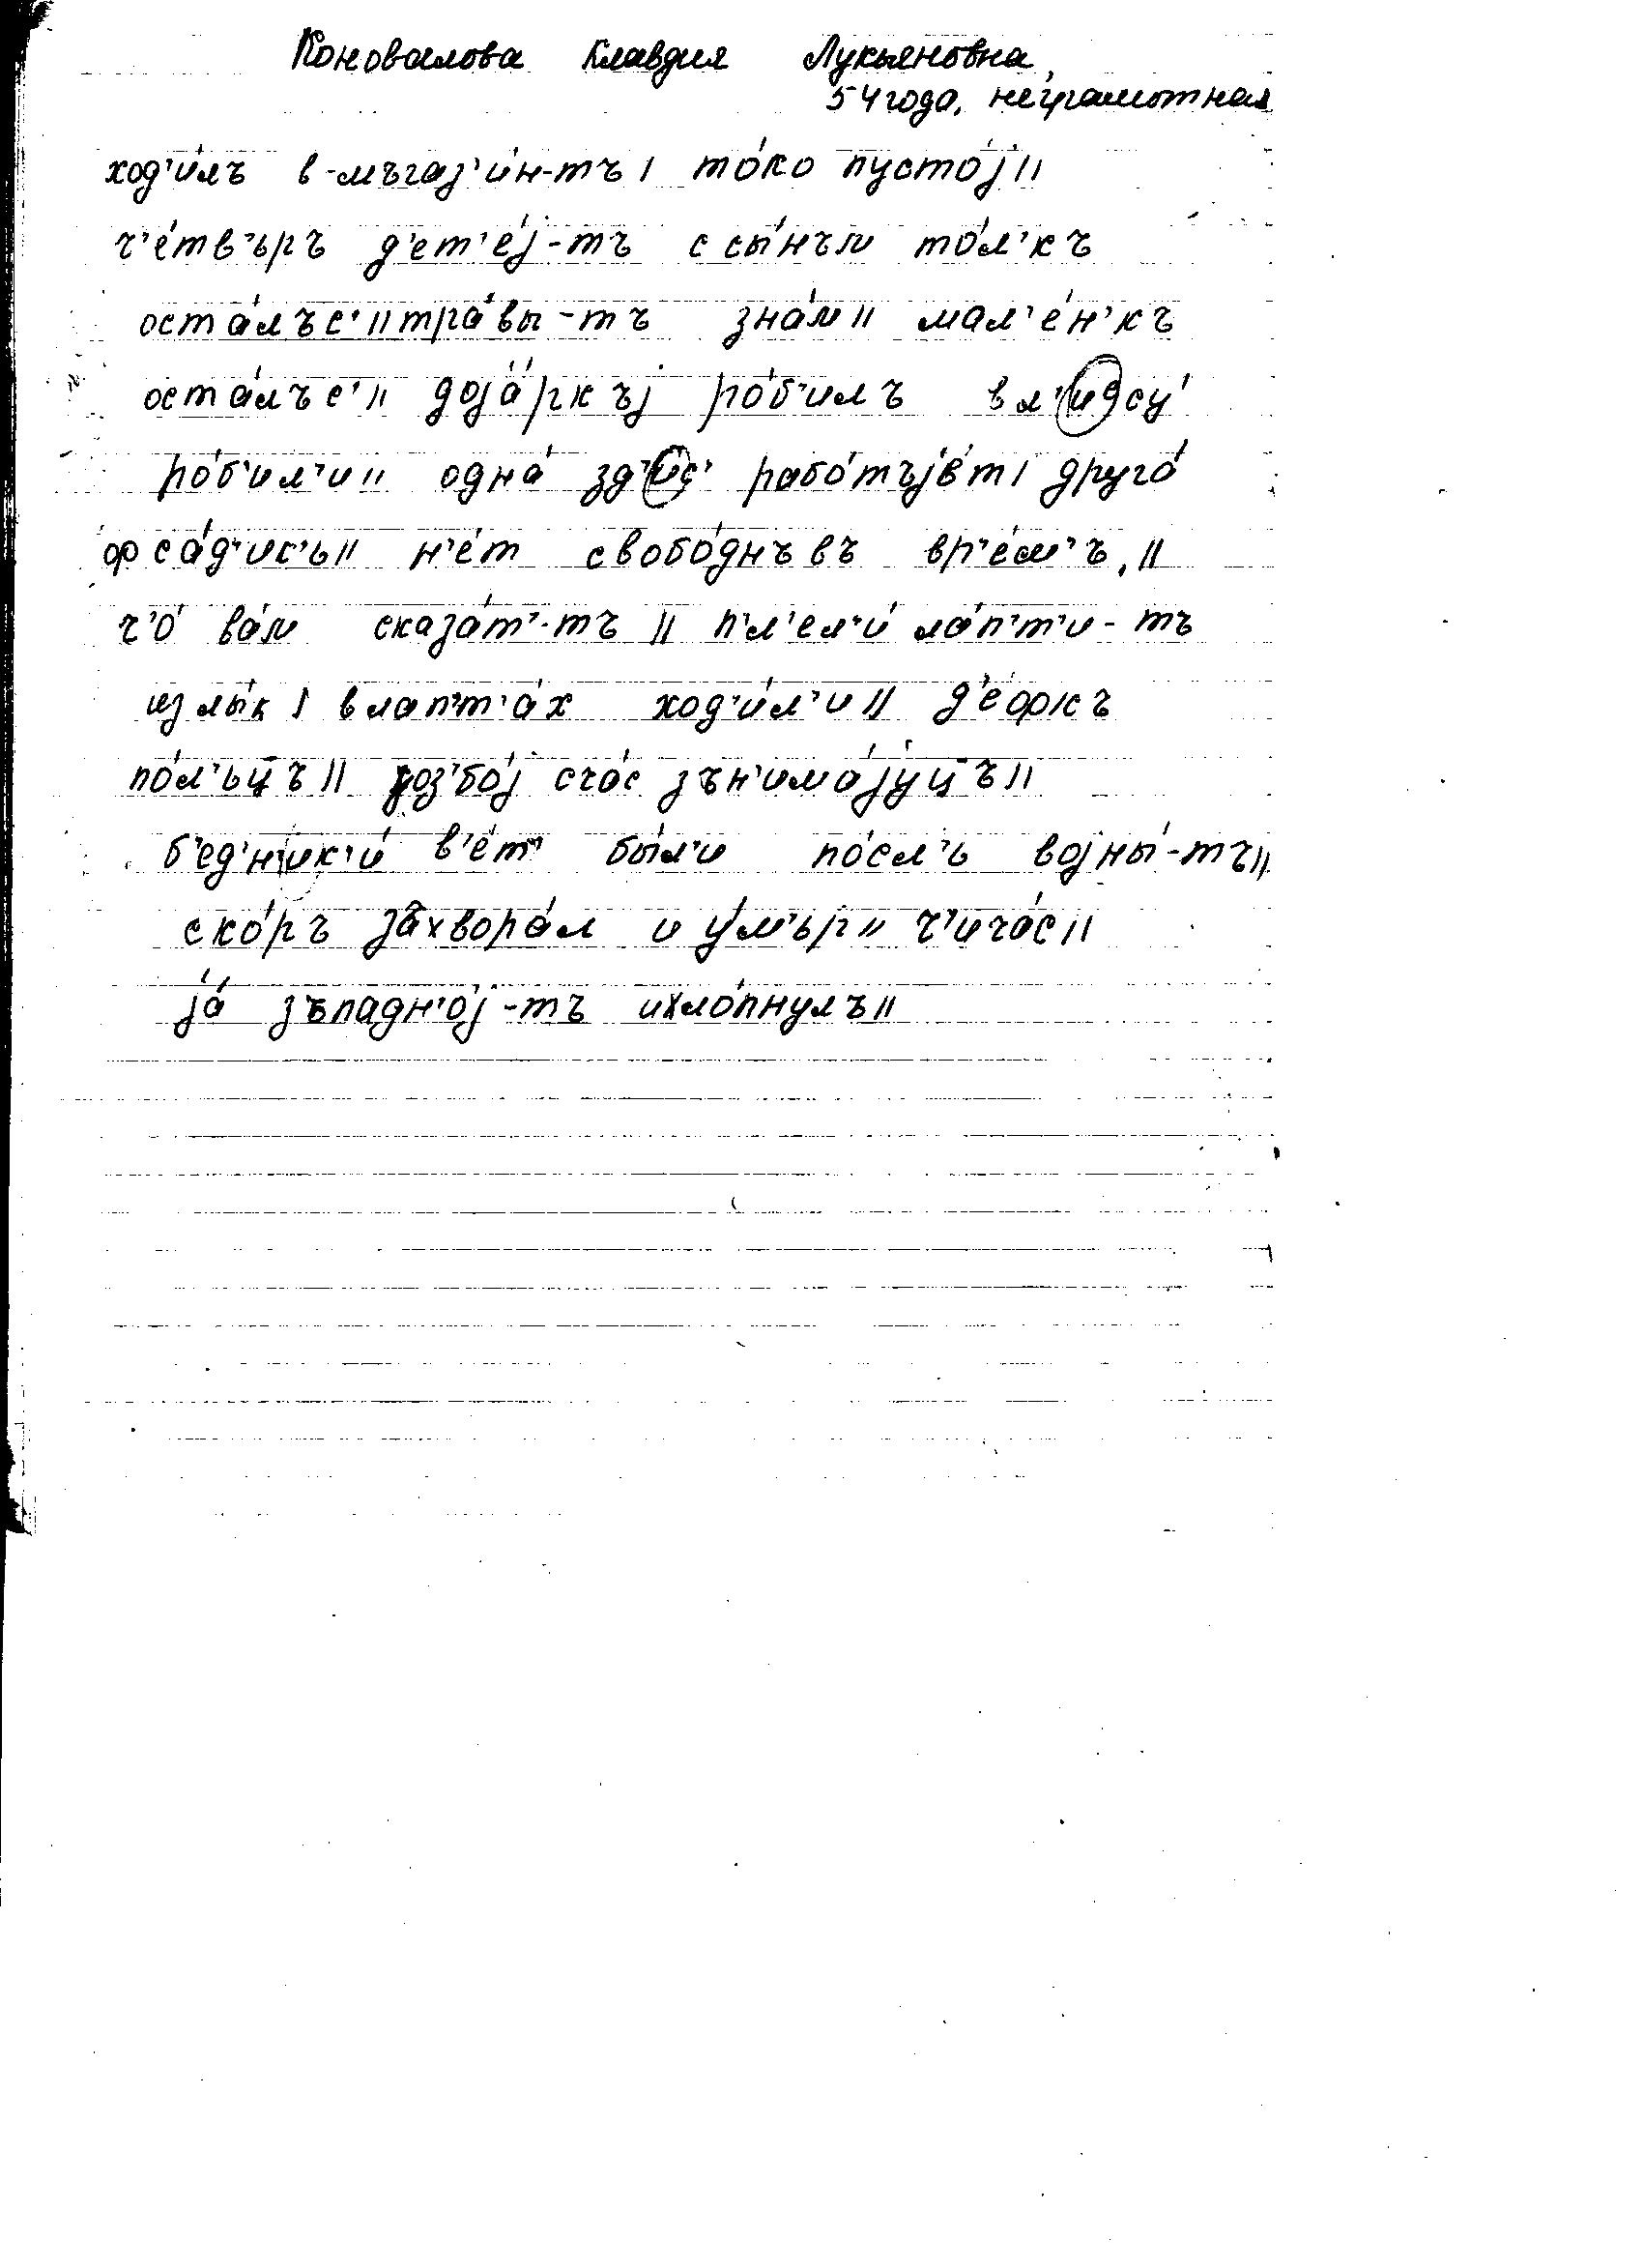 Коновалова Клавдия Лукьяновна,
54 года, неграмотная
ход'и́лъ в-мъгаз'и́н-тъ | то́ко пусто́j ||
ч'е́тв'ьръ д'ет'е́j-тъ с сы́нъм то́л'къ
оста́лъс' || тра́вы-тъ зна́м || мал'е́н'къ
оста́лъс' || доjа́ркъj ро́б'илъ в л'идсу́
ро́б'ил'и || одна́ зд'ис' рабо́тъjьт | друго́
ф са́д'ик'ь || н'е́т свобо́днъвъ вр'е́м'ъ, ||
ч'о́ ва́м сказа́т'-тъ || п'л'ел'и́ ла́п'т'и-тъ
из лы́к | в лап'т'а́х ход'и́л'и || д'е́фкъ
по́л'ьцъ || розбо́j сча́с зън'има́jуцъ ||
б'ед'н'ик'и́ в'е́т' бы́л'и по́сл'ь воjны́-тъ ||
ско́ръ захвора́л и у́м'ьр || ч'ича́с ||
jа́ зъпадн'о́j-тъ ихло́пнулъ ||